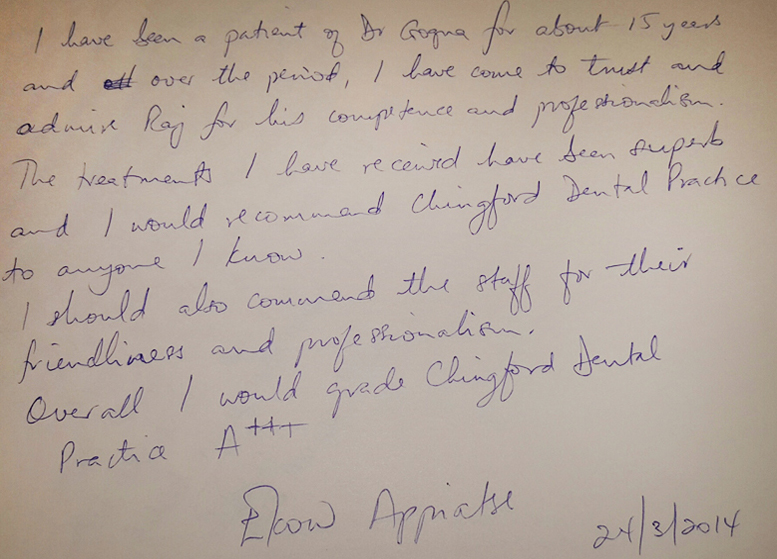 I have been a patient of Dr Gogna for about 15 years
and over the period, I have come to trust and
admire Raj for his competence and professionalism.
The treatments I have received have been superb
and I would recommend Chingford Dental Practice
to anyone I know.
I should also commend the staff for their
friendliness and professionalism.
Overall I would grade Chingford Dental
Practice A+++
Ekow Appiatse
24/3/2014